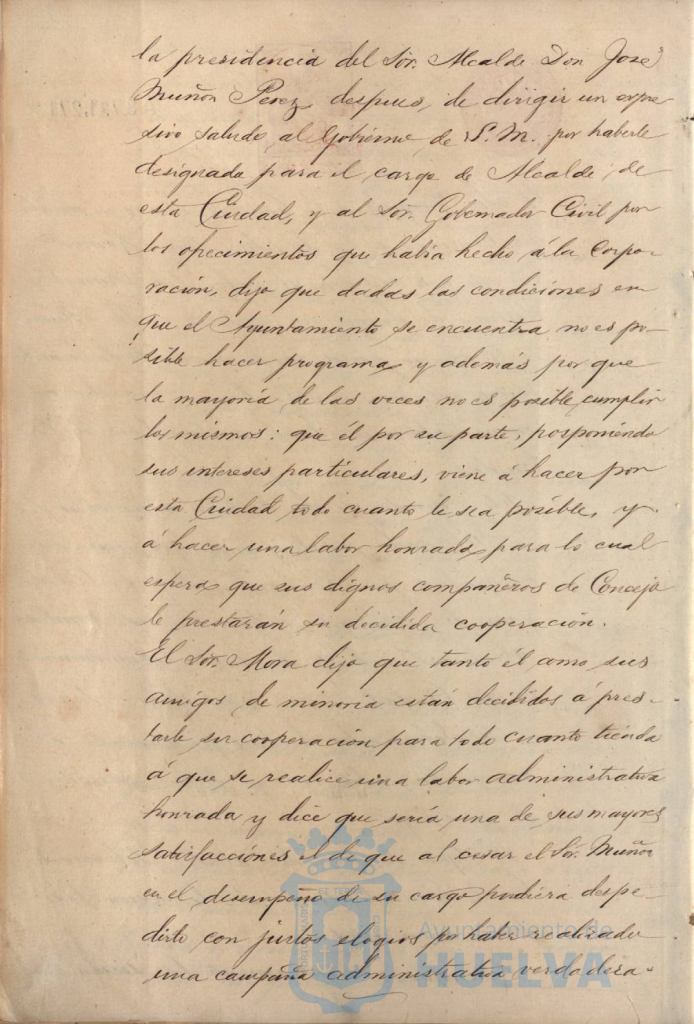 la presidencia del Sór. Alcalde Don José
Muñoz Perez, despues, de dirigir un expre-
sivo saludo, al Gobierno de S. M. por haberle
designado para el cargo de Alcalde, de
esta Ciudad, y al Sór. Gobernador Civil por
los ofrecimientos que había hecho á la Corpo-
ración, dijo que dadas las condiciones en
que el Ayuntamiento se encuentra no es po-
sible hacer programa y además por que
la mayoría de las veces no es posible cumplir
los mismos: que él por su parte, posponiendo
sus intereses particulares, viene á hacer por
esta Ciudad todo cuanto le sea posible, y
á hacer una labor honrada, para lo cual
espera que sus dignos compañeros de Concejo
le prestarán su decidida cooperación.
El Sór. Mora dijo que tanto él como sus
amigos de minoria están decididos á pres-
tarle su cooperación para todo cuanto tienda
á que se realice una labor administrativa
honrada y dice que sería una de sus mayores
satisfacciones el de que al cesar el Sór. Muñoz
en el desempeño de su cargo pudiera despe-
dirle con justos elogios por haber realizado
una campaña administrativa verdadera-
Ayuntamiento de
HUELVA